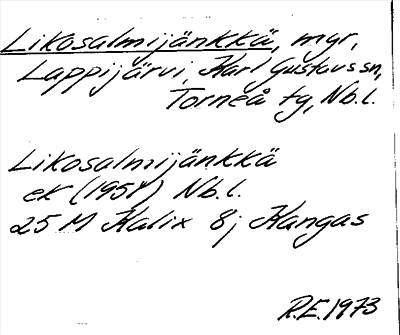 Likosalmijänkkä, mgr,
Lappijärvi, Karl Gustavs sn,
Torneå tg, Nb.l.
Likosalmijänkkä
ek (1951) Nb.l.
25 M Kalix 8j Kangas
R.E. 1973